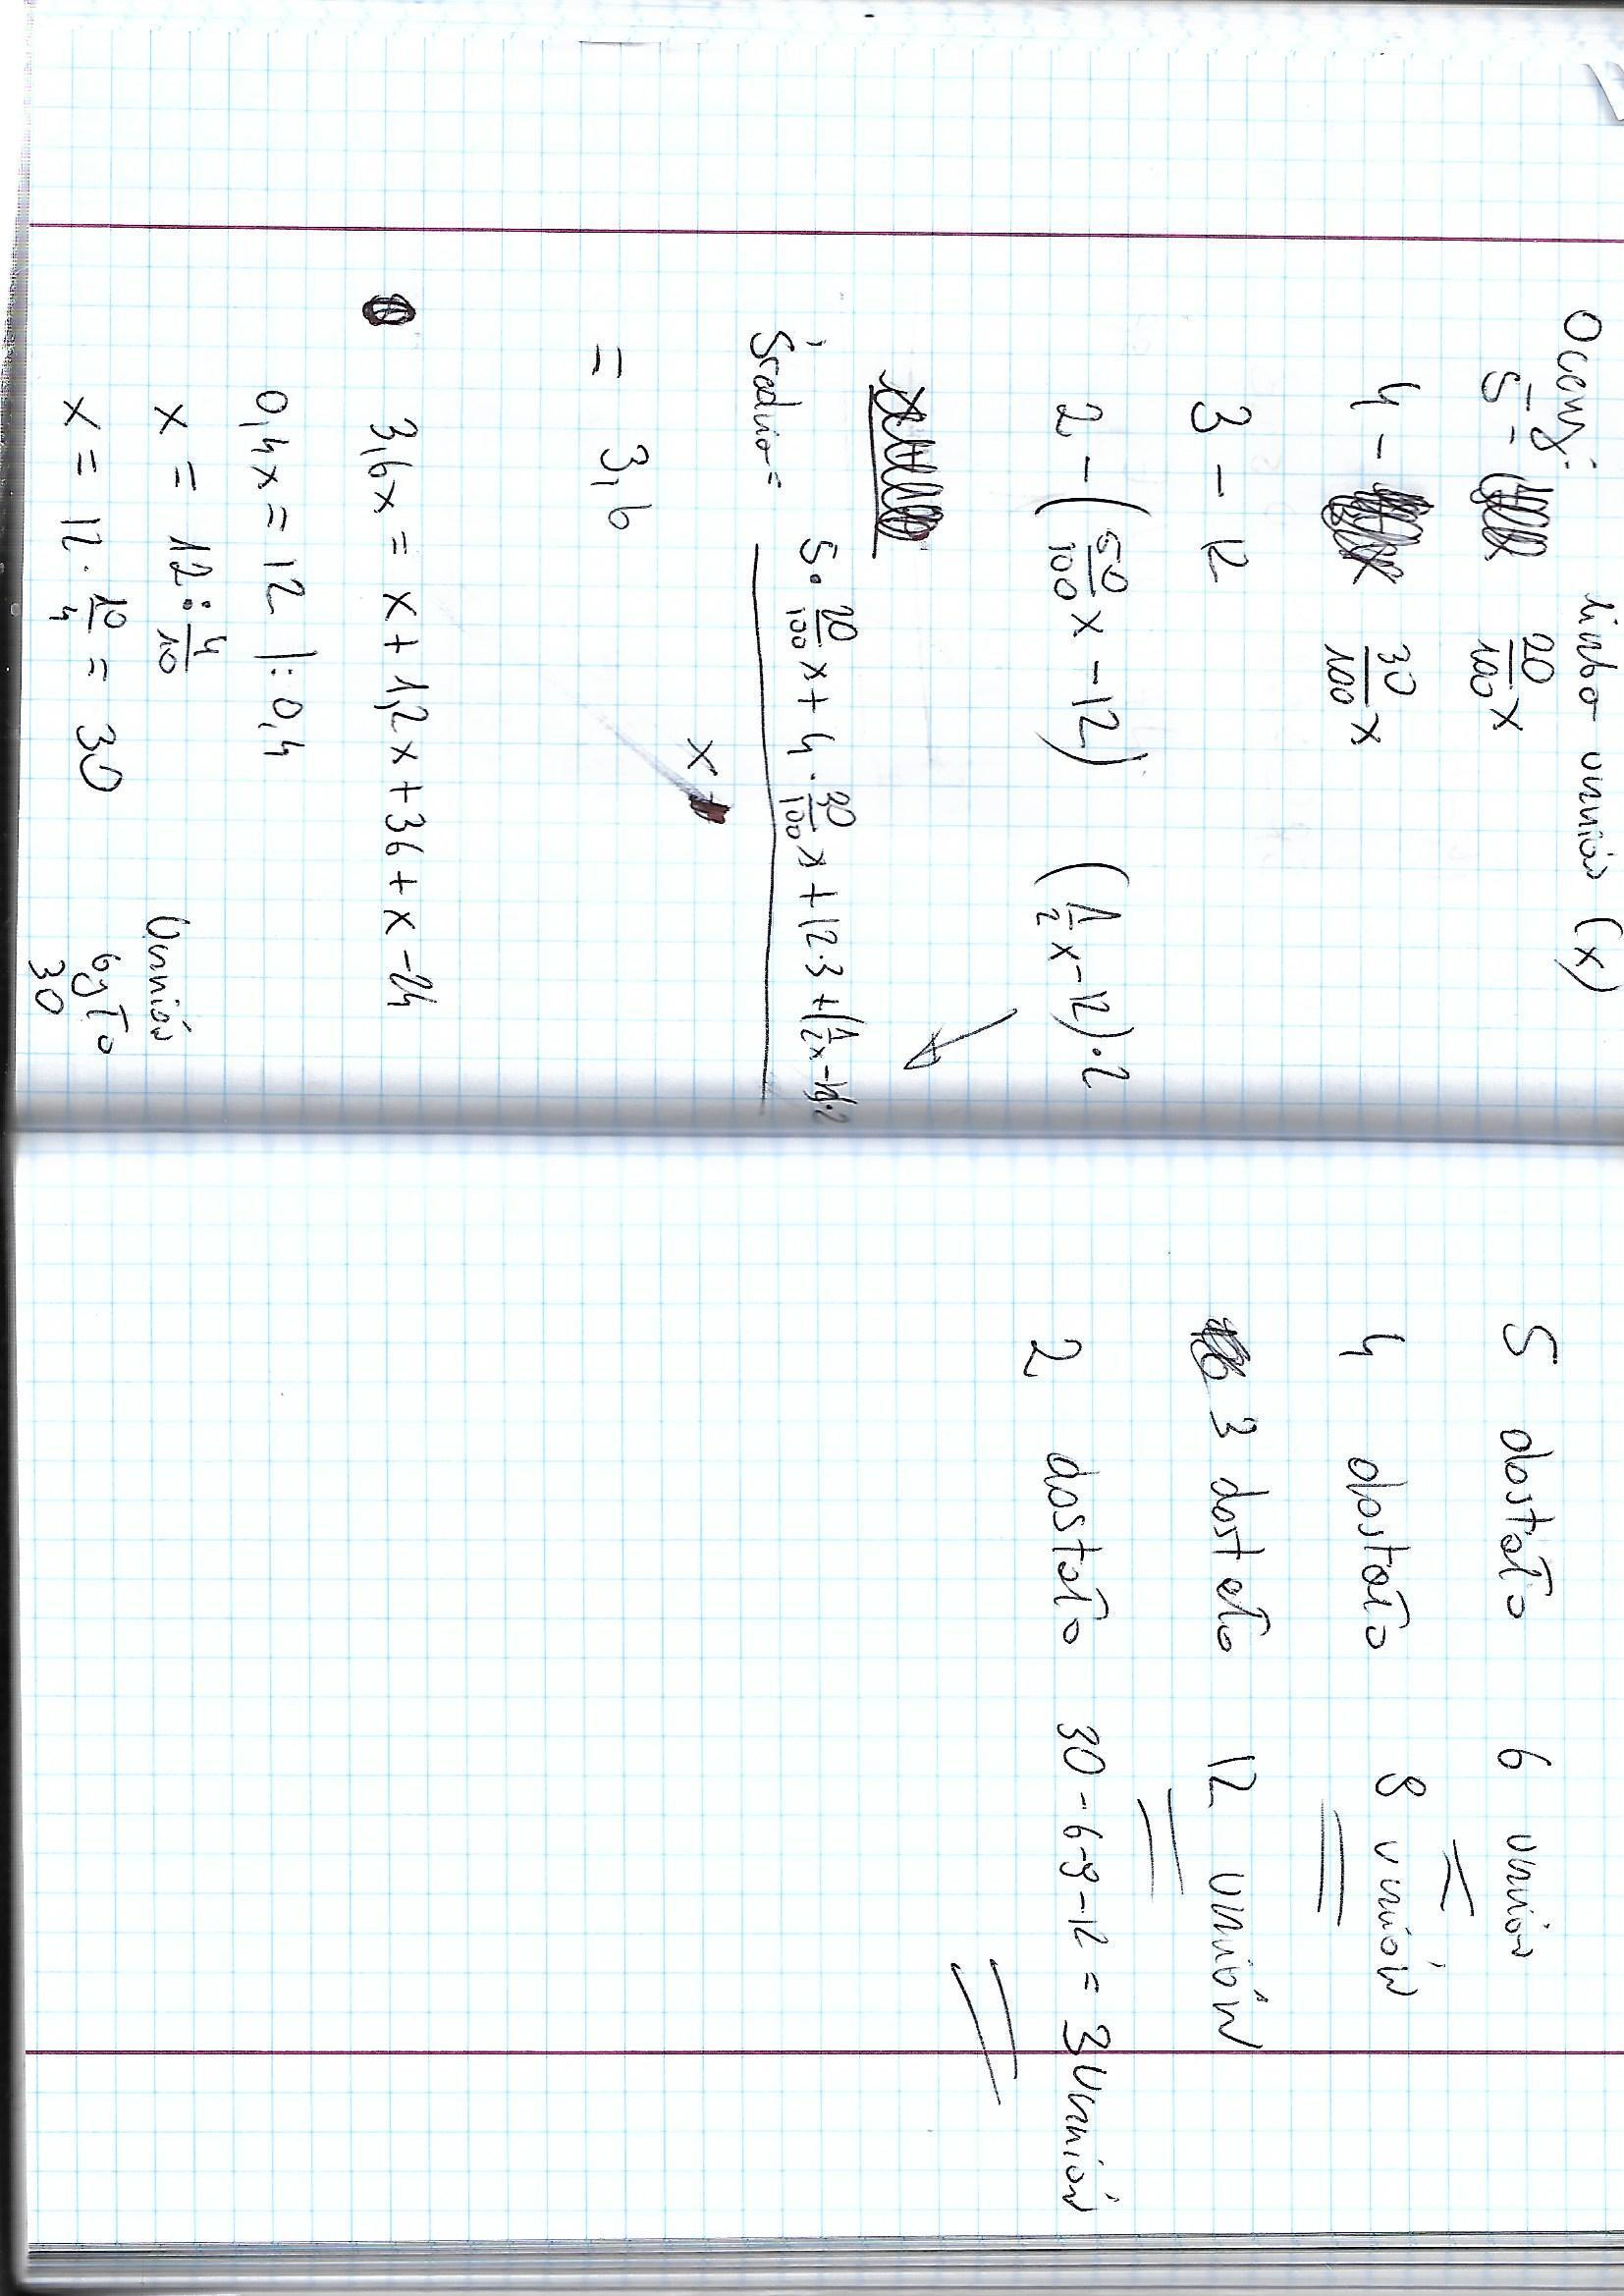 Oceny: liczba uczniów (x)
5 - 20/100 x
4 - 30/100 x
3 - 12
2 - (50/100 x - 12) (1/2 x - 12) · 2
Średnia = 5 · 20/100 x + 4 · 30/100 x + 12 · 3 + (1/2 x - 12) · 2
x
= 3,6
3,6x = x + 1,2x + 36 + x - 24
0,4x = 12 |: 0,4
x = 12 : 4/10
x = 12 · 10/4 = 30
Uczniów
było
30
5 dostało 6 uczniów
4 dostało 8 uczniów
3 dostało 12 uczniów
2 dostało 30 - 6 - 9 - 12 = 3 uczniów